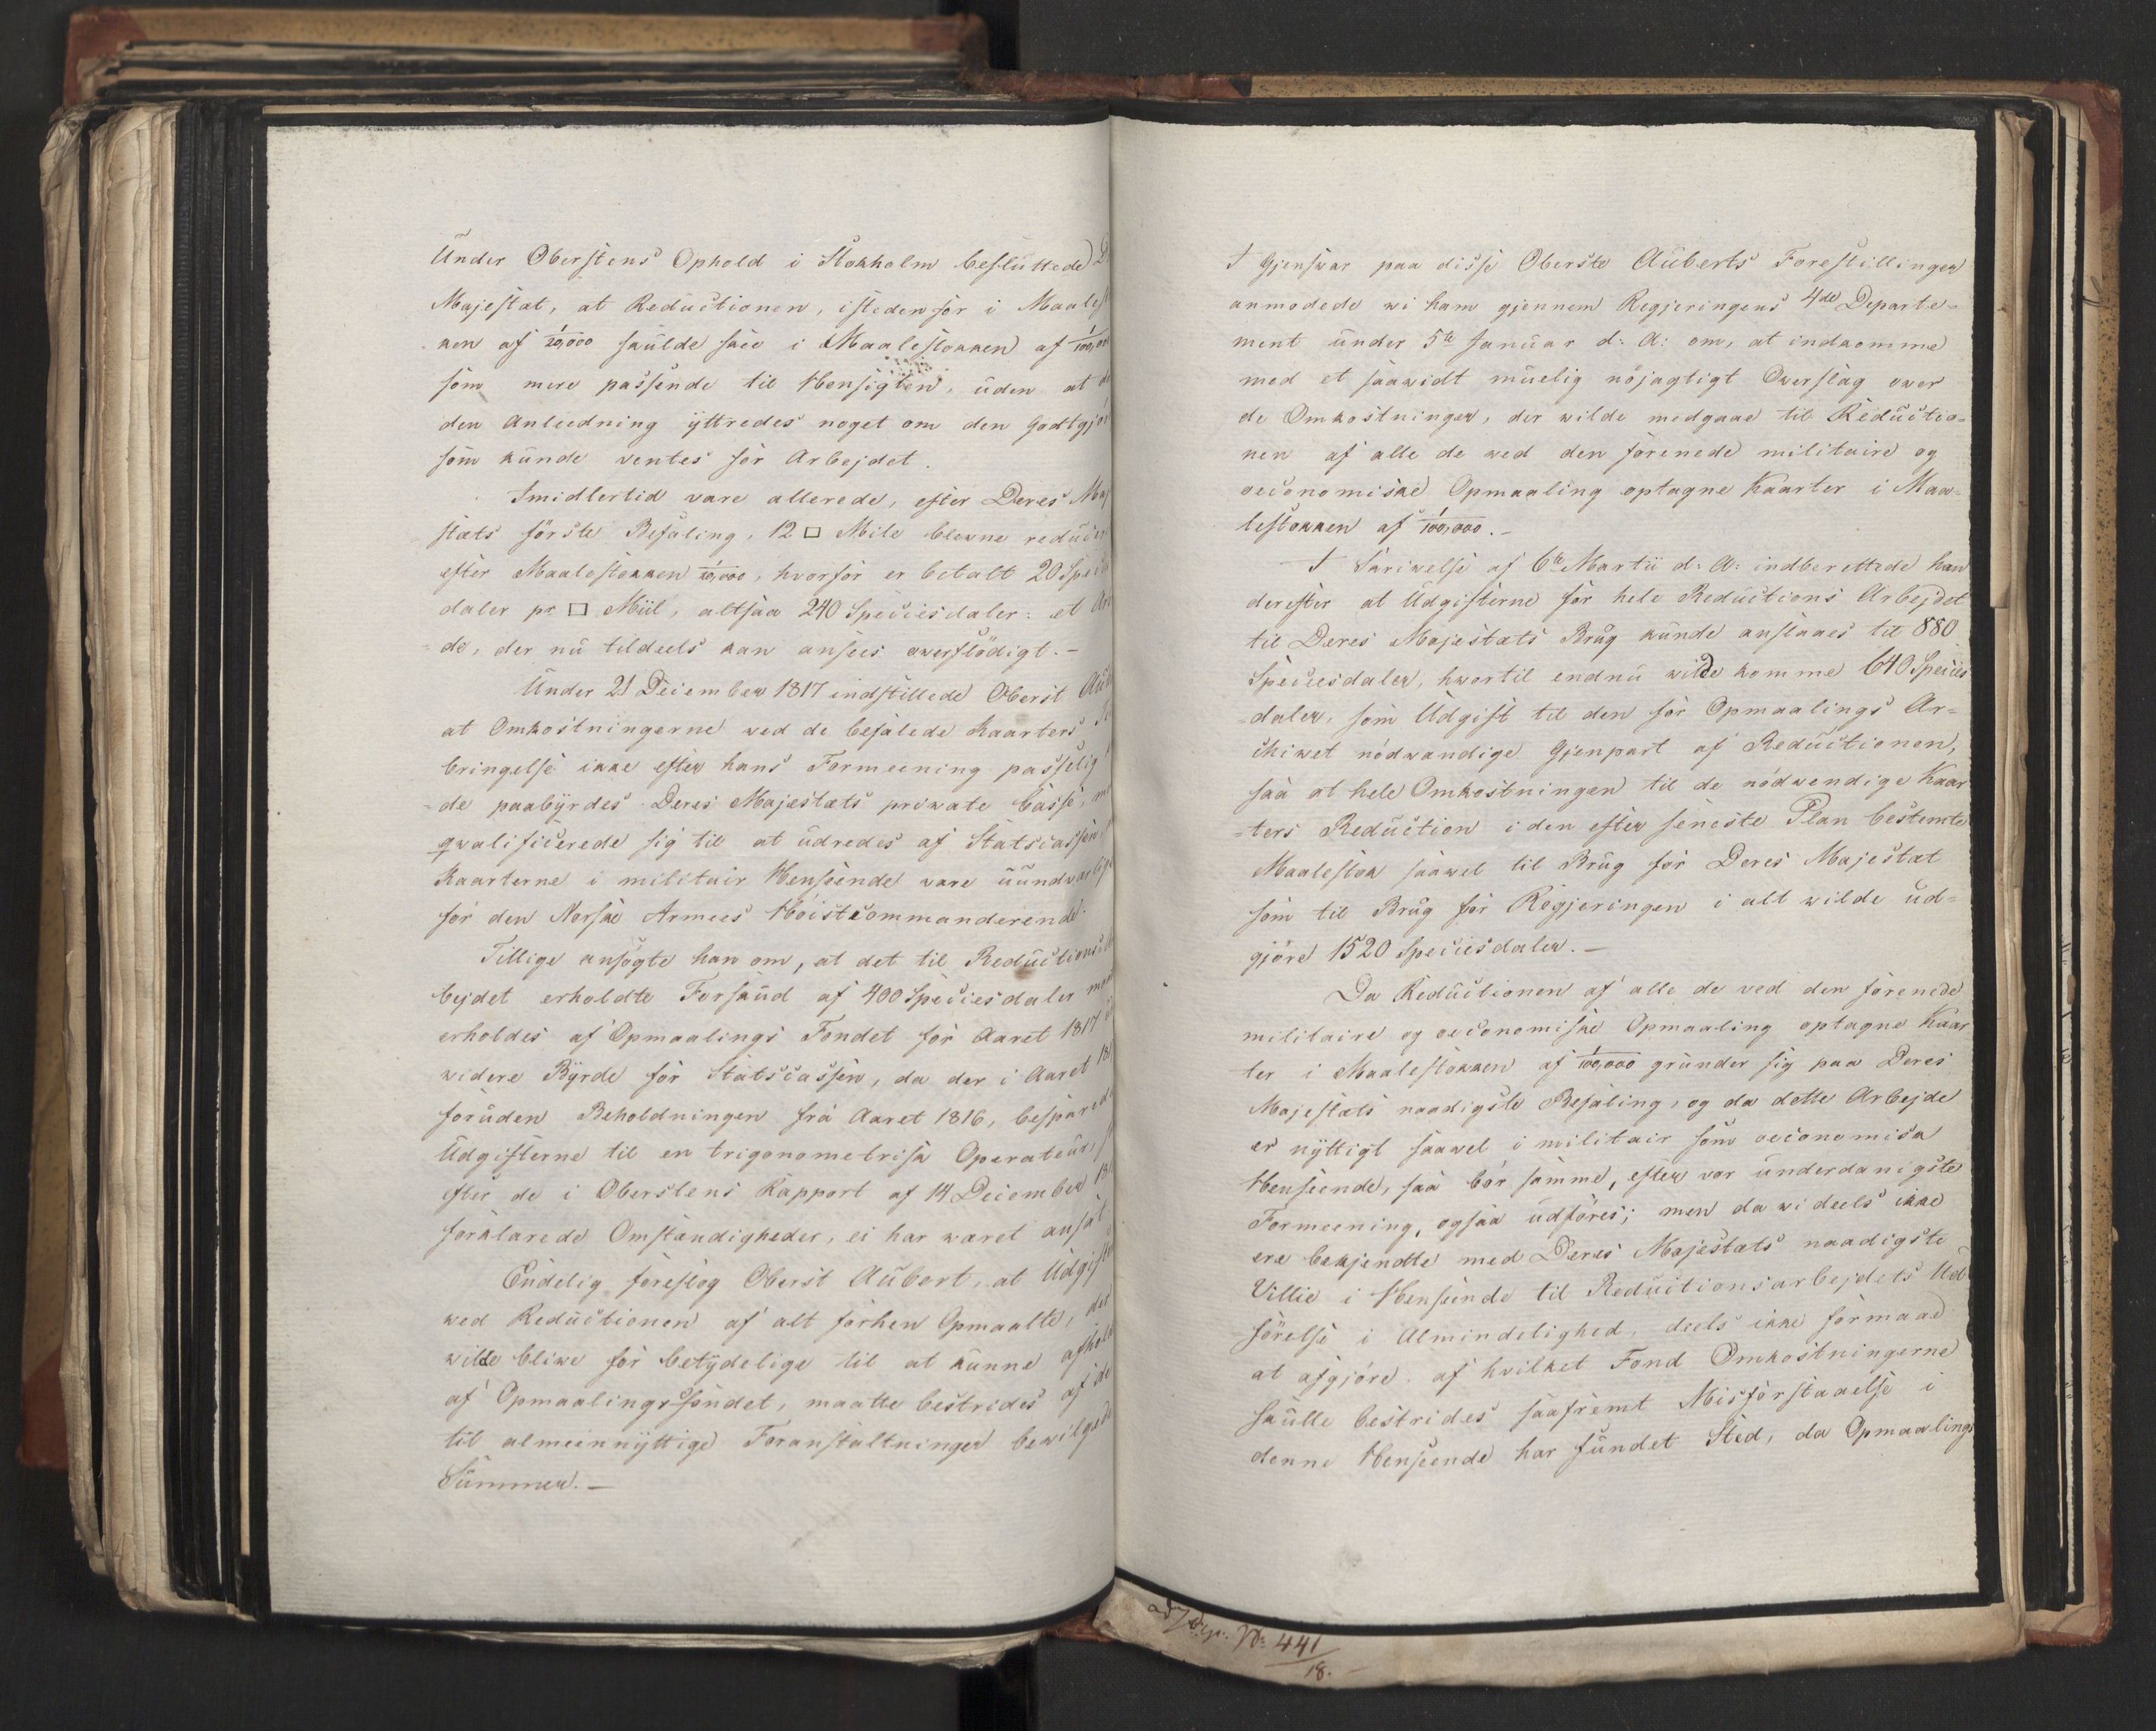 Under Oberstens Ophold i Stokholm besluttede D
Majestæt, at Reductionen, istedenfor i Maalest
ken af 1/20,000 skulde skee i Maalestokken af 1/100,00
som mere passende til Hensigten, uden at d
den Anleedning yttredes noget om den Godtgjör
som kunde ventes for Arbejdet.
Imidlertid vare allerede, efter Deres Maj
stæts förste Befaling, 12 □ Mile blevne reducer
efter Maalestokken 1/20,000, hvorfor er betalt 20 Speci
daler pr □ Miil, altsaa 240 Speciesdaler: et Arb
-de, der nu tildeels kan ansees owerflödigt.-
Under 21 December 1817 indstillede Oberst Aub
at Omkostningerne ved de befalede Kaarters
bringelse ikke efter hans Formeening passelig
-de paabyrdes Deres Majestæts private Casse, me
qwalificerede sig til at udredes af Statscassen,
Kaarterne i militair Henseende vare uundværlige
for den Norske Armees Höistcommanderende.
Tillige ansøgte han om, at det til Reductions
bejdet erholdte Forskud af 400 Speciesdaler maa
erholdes af Opmaalings Fondet for Aaret 1817
widere Byrde for Statscassen, da der i Aaret 181
foruden Beholdningen fra Aaret 1816, besparede
Udgifterne til en trigonometrisk Operateur,
efter de i Oberstens Rapport af 14 December 181
forklarede Omstændigheder, ei har været ansat
Endelig foreslog Oberst Aubert, at Udgift
wed Reductionen af alt forhen Opmaalte, der
wilde bliwe for betydelige til at kunne afhold
af Opmaalingsfondet, maatte bestrides af de
til almeennyttige Foranstaltninger bewilgede
Summer.-
I Gjenswar paa disse Oberste Auberts Forestillinger
anmodede wi ham gjennem Regjeringens 4de Departe-
ment under 5te Januar d: A: om, at indkomme
med et saawidt muelig nöjagtigt Owerslag ower
de Omkostninger, der wilde medgaae til Reductio-
nen af alle de wed den forenede militaire og
oeconomiske Opmaaling optagne Kaarter i Maa-
lestokken af 1/100,000.-
I Skriwelse af 6te Martii d: A: indberettede han
derefter at Udgifterne for hele Reductions Arbejdet
til Deres Majestæts Brug kunde anslaaes til 880
Speciesdaler, hwortil endnu wilde komme 640 Species
-daler, som Udgift til den for Opmaalings Ar-
chivet nödwendige Gjenpart af Reductionen,
saa at hele Omkostningen til de nödwendige Kaar
-ters Reduction i den efter seneste Plan bestemte
Maalestok saawel til Brug for Deres Majestæt
som til Brug for Regjeringen i alt wilde ud-
gjöre 1520 Speciesdaler.-
Da Reductionen af alle de ved den forenede
militaire og oeconomiske Opmaaling optagne Kaar
ter i Maalestokken af 1/100,000 grunder sig paa Deres
Majestæts naadigste Befaling, og da dette Arbejde
er nyttigt saavel i militair som oeconomisk
Henseende, saa bör samme, efter vor underdanigste
Formeening, ogsaa udföres; men da wi deels ikke
ere bekjendte med Deres Majestæts naadigste
Villie i Henseende til Reductionsarbejdets Ud
förelse i Almindelighed, deels ikke formaae
at afgjöre, af hvilket Fond Omkostningerne
skulle bestrides saafremt Misforstaaelse i
denne Henseende har fundet Sted, da Opmaalings
No 441/18.